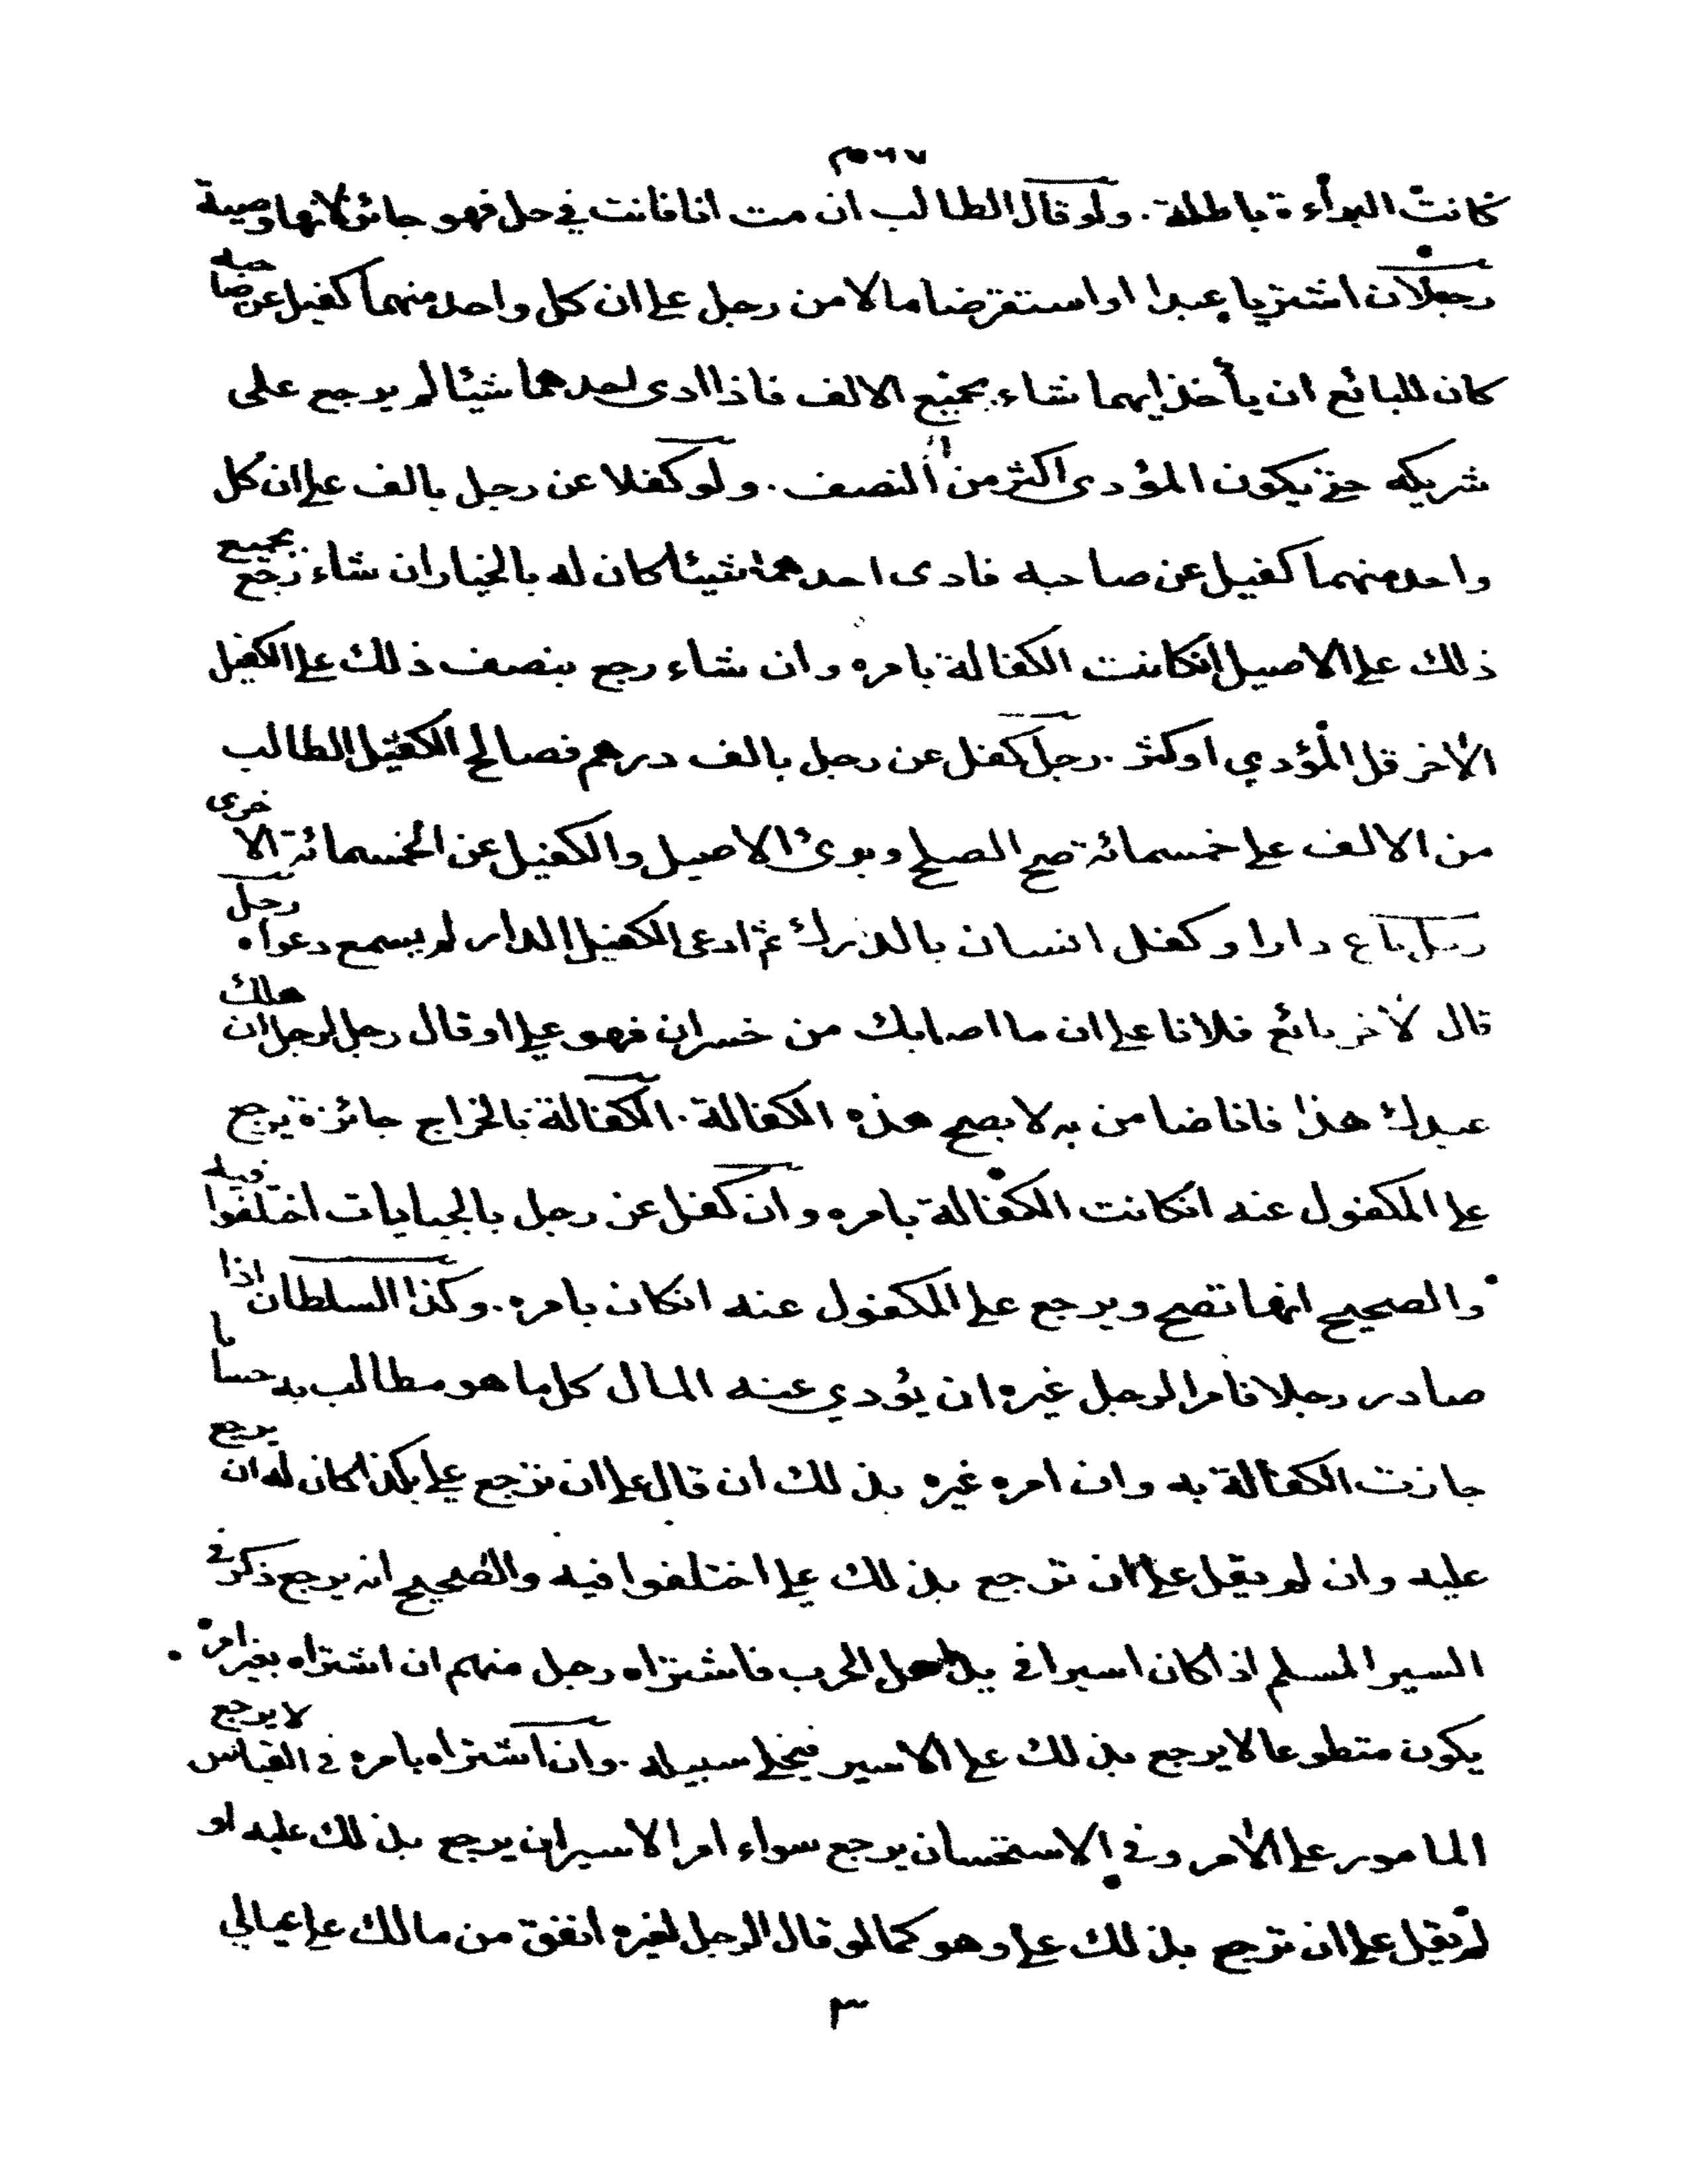 كانت البرأءة باطلة. ولو قال الطالب ان مت انا فانت في حل فهو جائز لانها وصية
رجلان اشتريا عبدا او استقرضا مالا من رجل على ان كل واحد منهما كفيل عن صاحبه
كان للبائع ان يأخذ ايهما شاء بجميع الالف فاذا ادى احدهما شيئا لم يرجع على
شريكه حتى يكون المؤدى اكثر من النصف. ولو كفلا عن رجل بالف على ان كل
واحد منهما كفيل عن صاحبه فادى احدهما شيئا كان له بالخيار ان شاء رجع بجميع
ذلك على الاصيل انكانت الكفالة بامره وان شاء رجع بنصف ذلك على الكفيل
الاخر قل المؤدي او كثر. رجل كفل عن رجل بالف درهم فصالح الكفيل الطالب
من الالف على خمسمائة صح الصلح وبرئ الاصيل والكفيل عن الخمسمائة الاخرى
رجل باع دارا وكفل انسان بالدرك ثم ادعى الكفيل الدار لم يسمع دعواه رجل
قال لاخر بائع فلانا على ان ما اصابك من خسران فهو علي او قال رجل لرجل ان هلك
عبدك هذا فانا ضامن به لا يصح هذه الكفالة. الكفالة بالخراج جائزة يرجع
على المكفول عنه انكانت الكفالة بامره وان كفل عن رجل بالجبايات اختلفوا فيه
والصحيح انها تصح ويرجع على المكفول عنه انكان بامره. وكذا السلطان اذا
صادر رجلا فامر الرجل غيره ان يؤدي عنه المال كل ما هو مطالب به حسا با
جازت الكفالة به وان امره غيره بذلك ان قال على ان ترجع علي بكذا كان له ان يرجع
عليه وان لم يقل على ان ترجع بذلك علي اختلفوا فيه والصحيح انه يرجع ذكر في
السير المسلم اذا كان اسيرا في يد اهل الحرب فاشتراه رجل منهم ان اشتراه بغير امره
يكون متطوعا لا يرجع بذلك على الاسير فيخلى سبيله. وان اشتراه بامره في القياس لا يرجع
المامور على الامر وفي الاستحسان يرجع سواء امر الاسير ان يرجع بذلك عليه او
لم يقل على ان ترجع بذلك علي وهو كما لو قال الرجل لغيره انفق من مالك على عيالي
٣